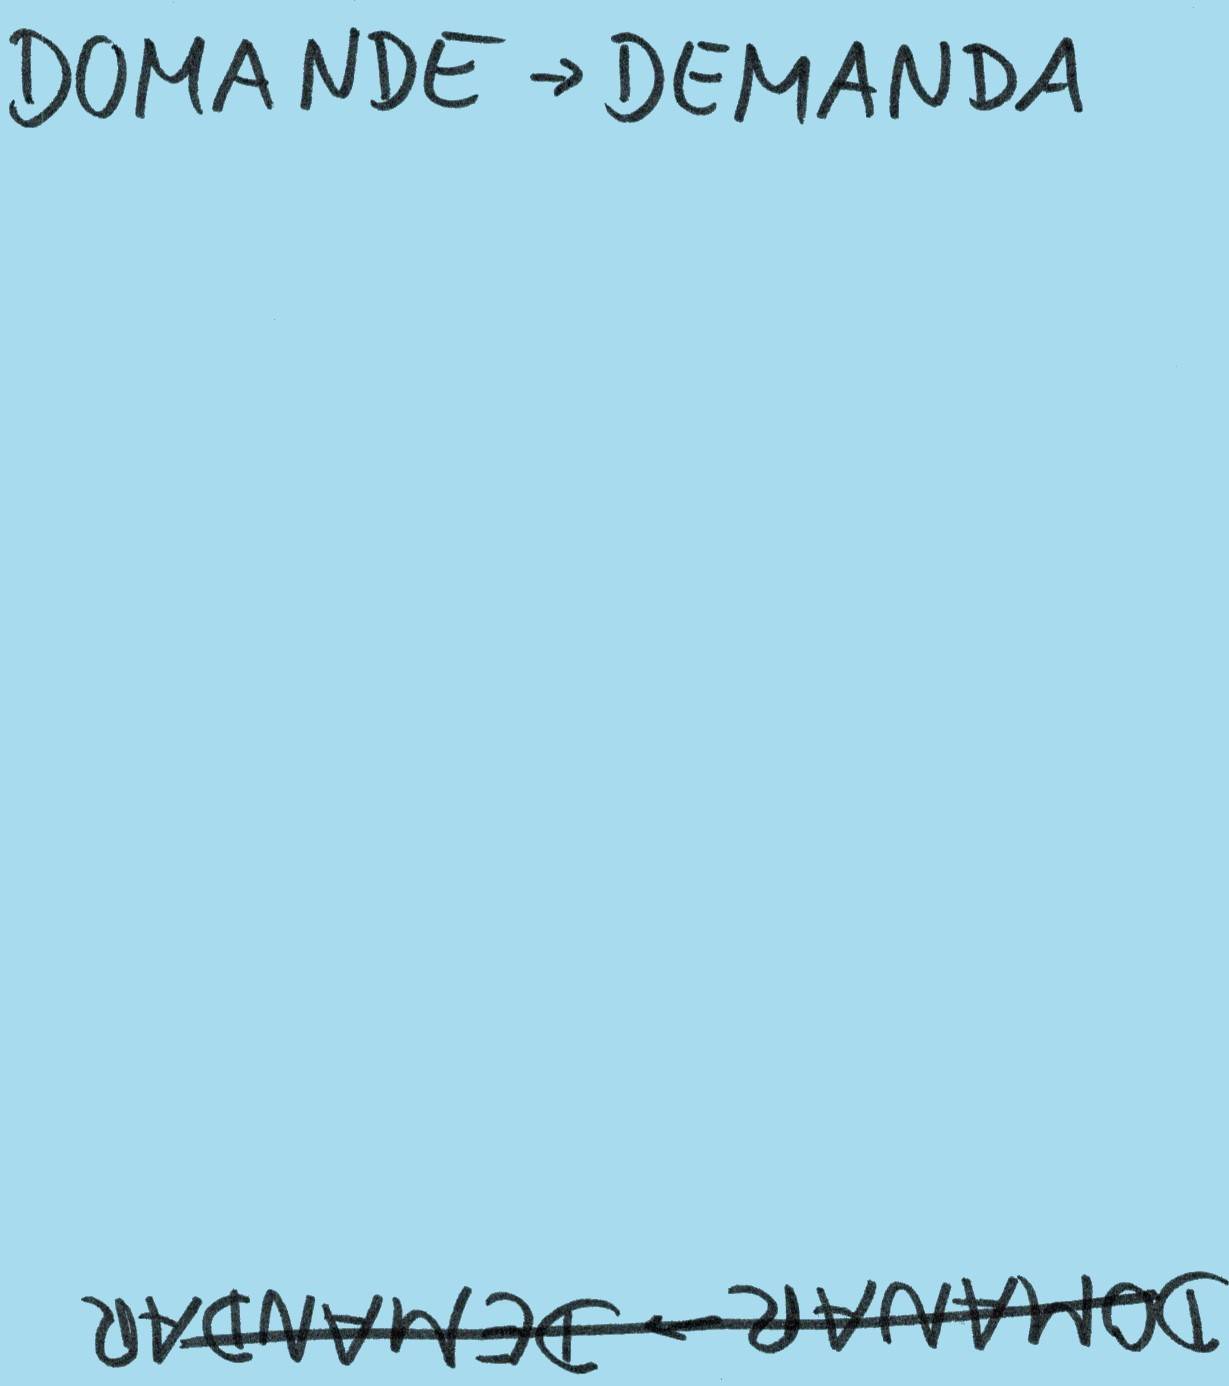 DOMANDE → DEMANDA
DOMANAR → DEMANDAR